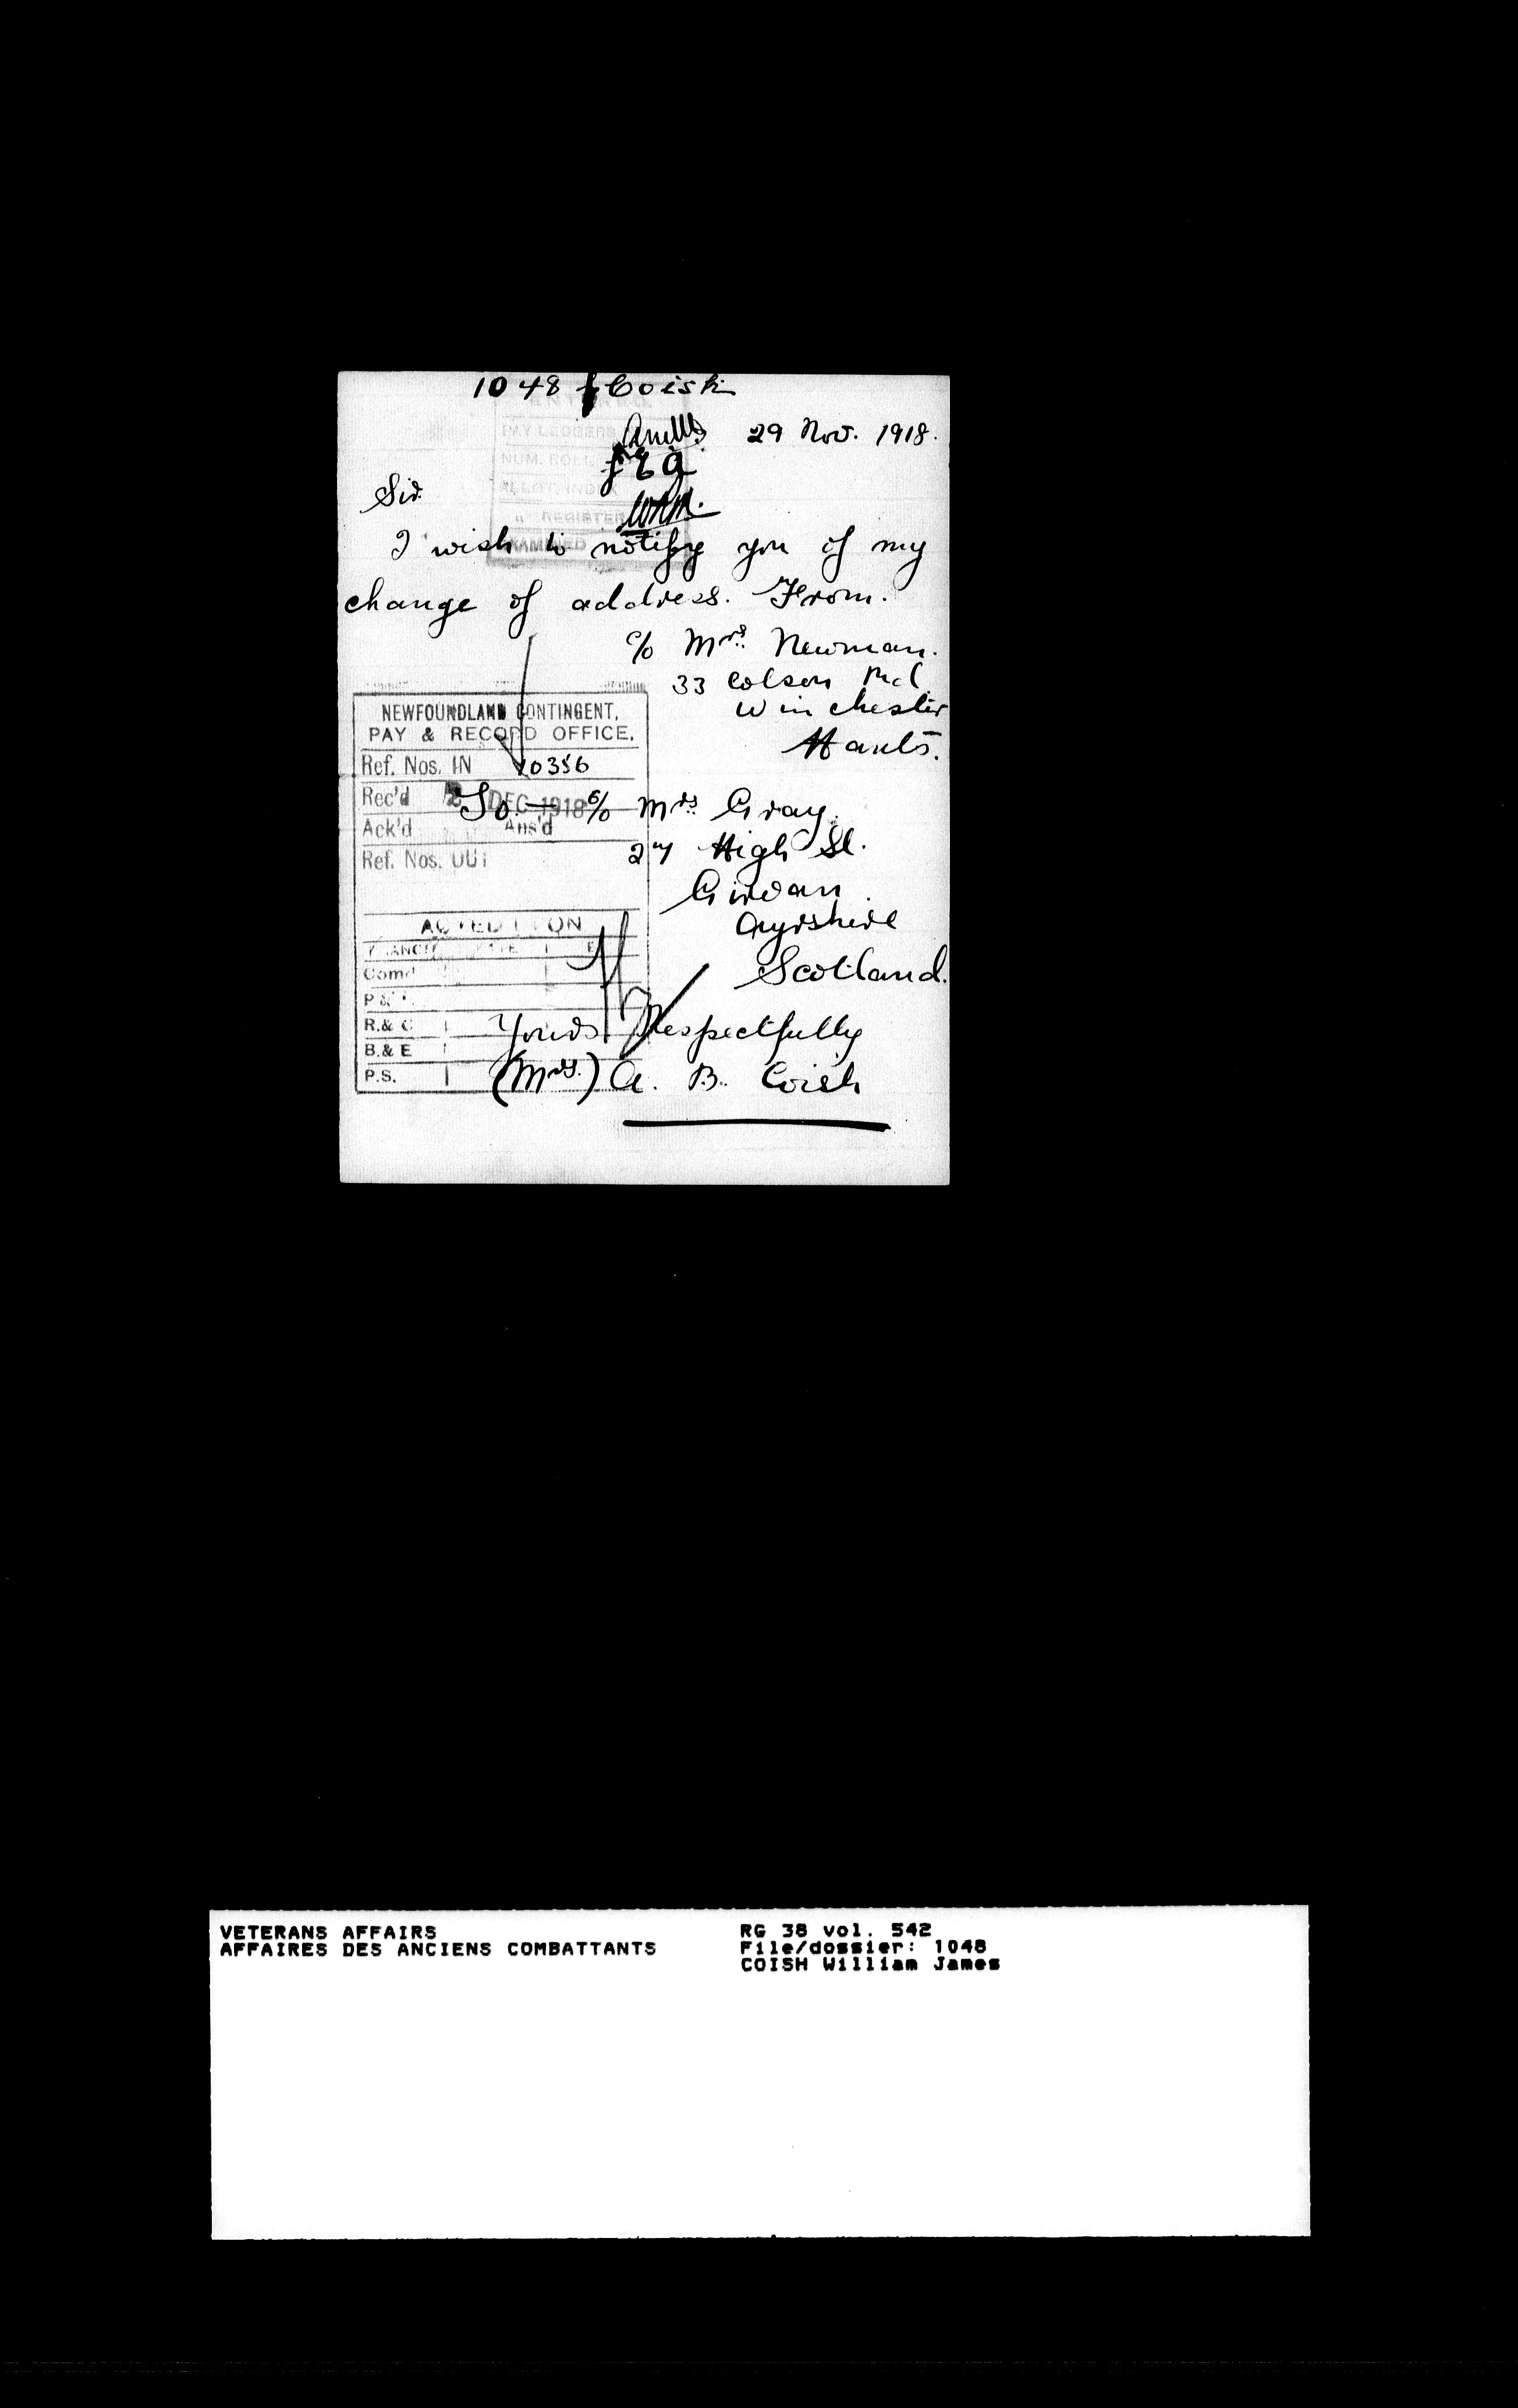 1048 Coish
ENTERED.
PAY LEDGERS
29 Nov. 1918.
NUM. ROLL
ALLOT. INDEX
Sir
" REGISTER
EXAMINED
I wish to notify you of my
change of address. From.
c/o Mrs. Newman.
33 Colson Rd
Winchester
Hants.
NEWFOUNDLAND CONTINGENT,
PAY & RECORD OFFICE.
Ref. Nos. IN 10356
Rec'd 2 DEC 1918
To - c/o Mrs. Gray.
Ack'd Ans'd
27 High St.
Ref. Nos. OUT
Girvan
Ayrshire
Scotland.
ACTED UPON
Comd
R.& C
B.& E
P.S.
Yours Respectfully
(Mrs.) A. B. Coish
VETERANS AFFAIRS
AFFAIRES DES ANCIENS COMBATTANTS
RG 38 vol. 542
File/dossier: 1048
COISH William James